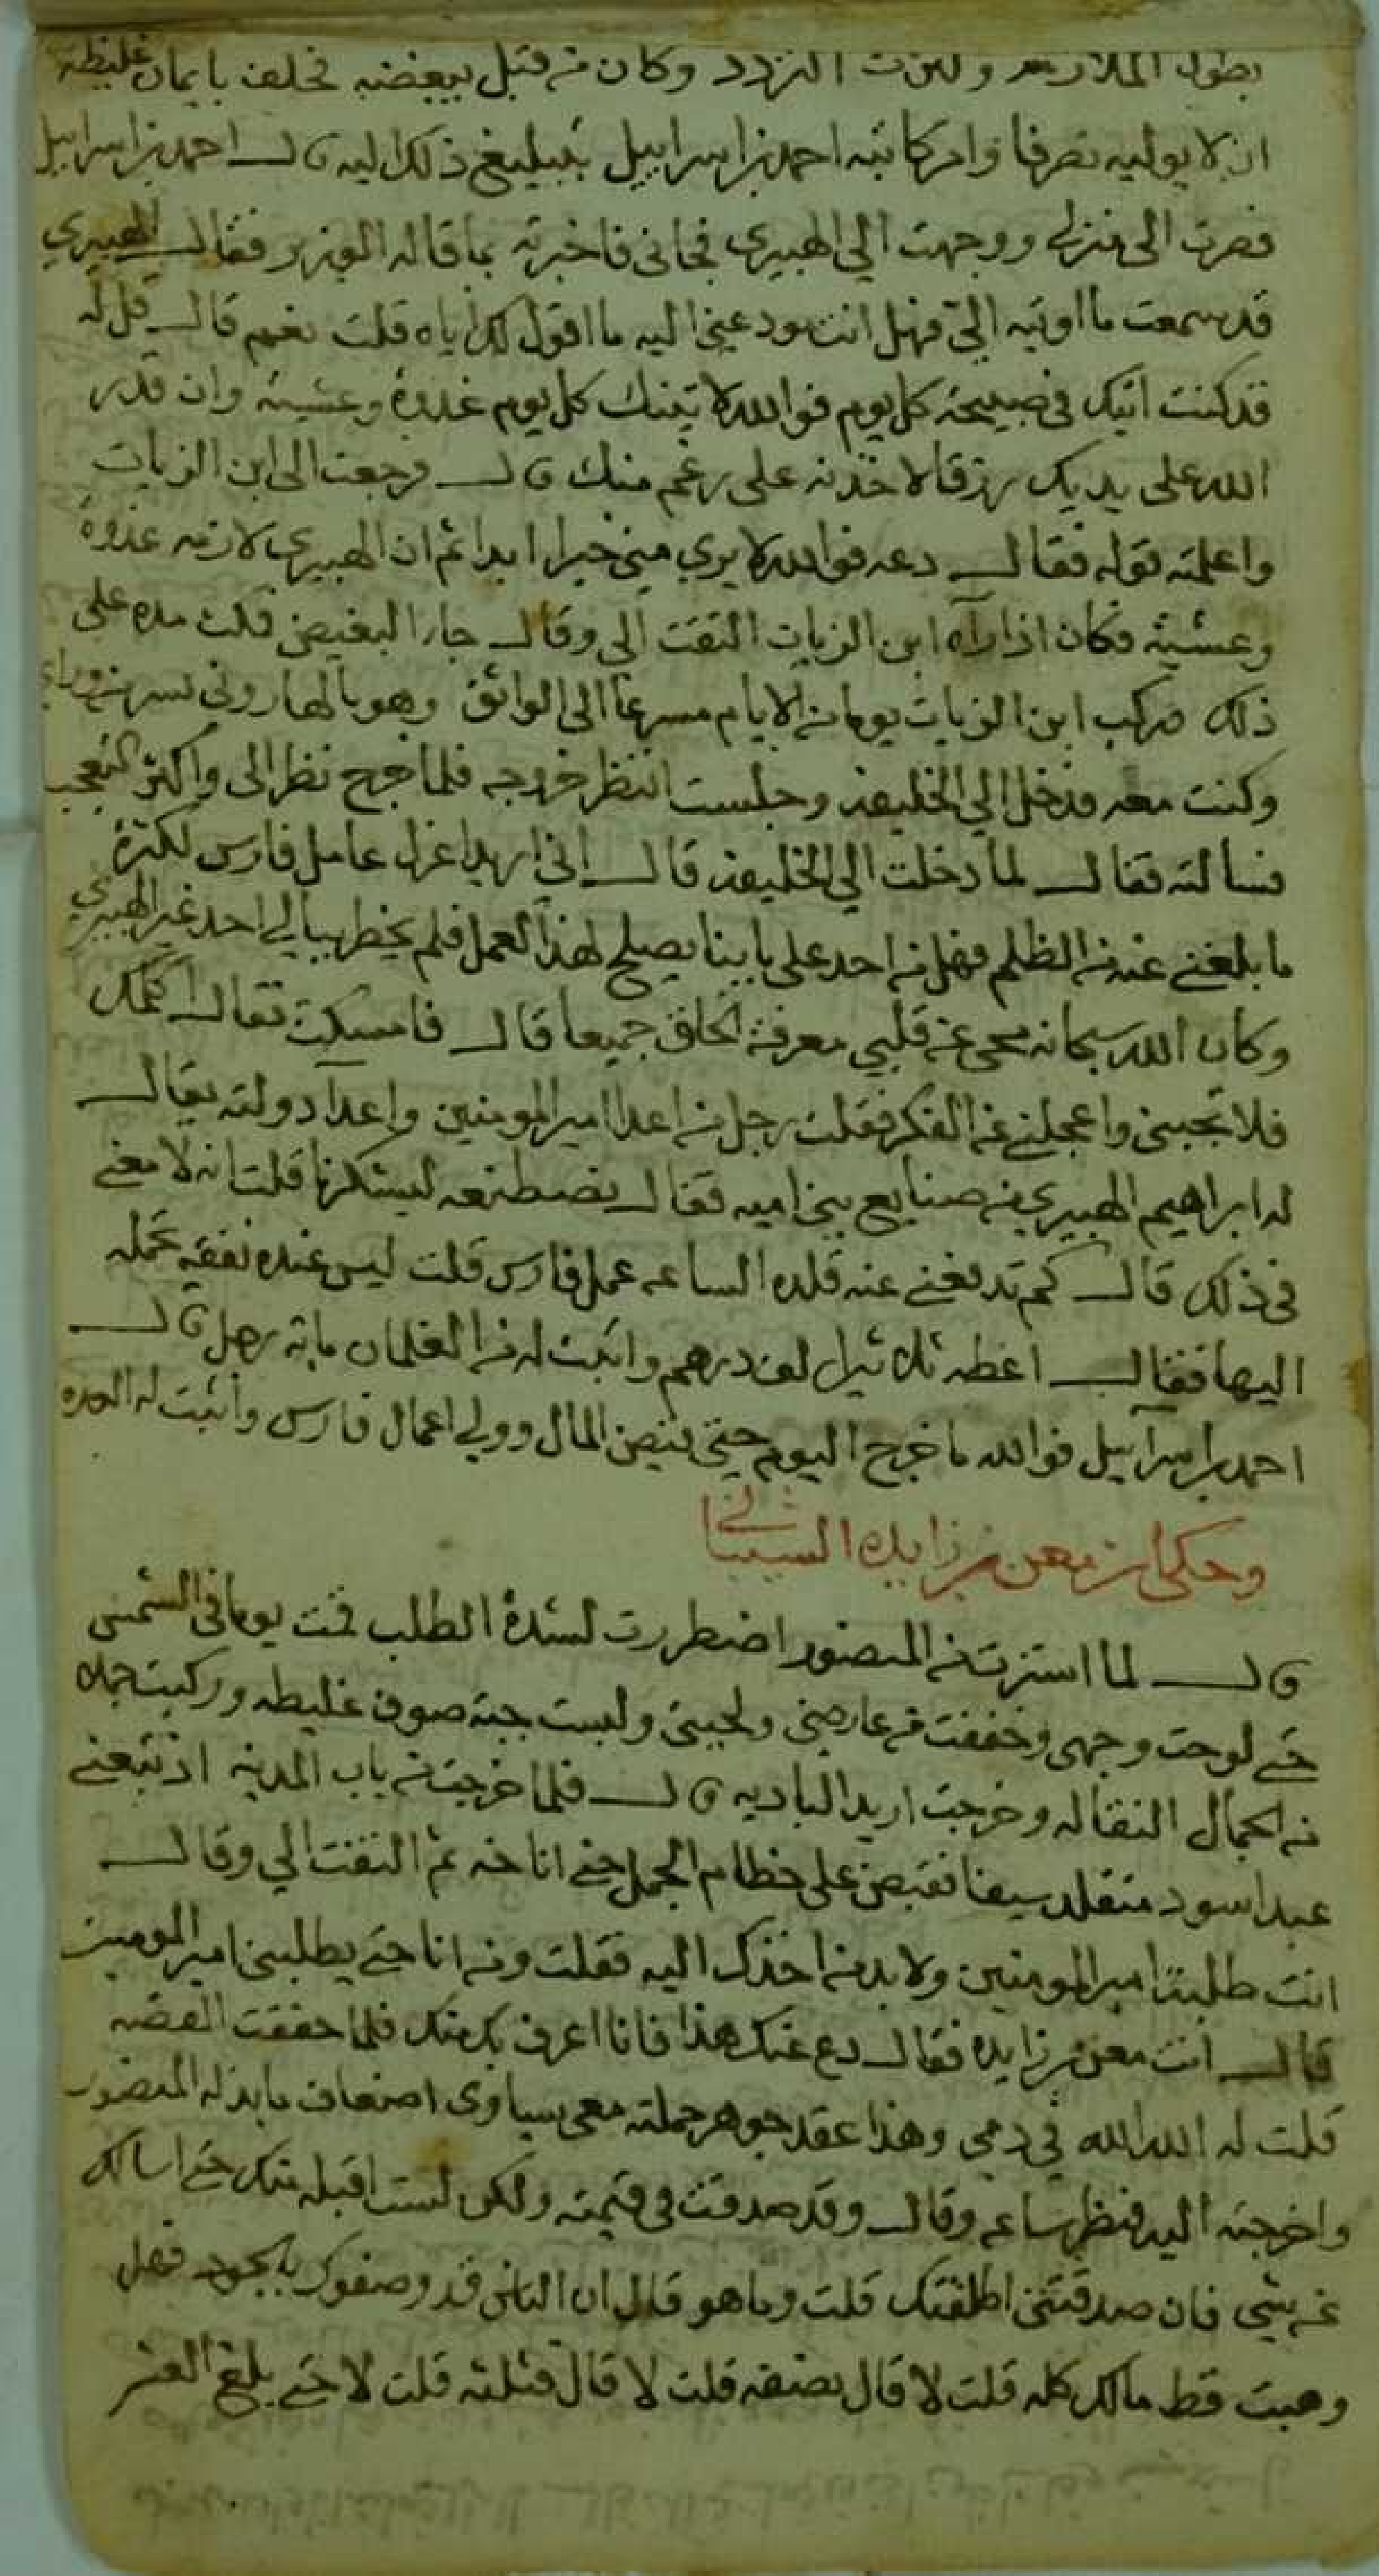 بطول الملازمه ولزت التردد وكان من قبل يبغضه فحلف بايمان غليظه
ان لا يوليه تصرفا وامر كاتبه احمد بن اسراييل بتبليغ ذلك اليه قال احمد بن اسراييل
فصرت الى منزلي ووجهت الي الهبيري فجاني فاخبرته بما قاله الوزير فقال الهبيري
قد سمعت ما اوتيه الي فهل انت مودعيني اليه ما اقول لك اياه قلت نعم قال قل له
قد كنت اتيك في صبيحة كل يوم فوالله لاتينك كل يوم غدوة وعشية وان قدر
الله على يديك رزقا لاخذنه على رغم منك قال فرجعت الى ابن الزيات
واعلمته قوله فقال دعه فوالله لا يري مني خيرا ابدا ثم ان الهبيري لازمه غدوة
وعشية فكان اذا رآه ابن الزيات التفت الي وقال جا البغيض فلبث مده على
ذلك فركب ابن الزيات يوما من الايام مسرعا الى الواثق وهو بالهاروني بسر من راى
وكنت معه فدخل الي الخليفه وجلست انتظر خروجه فلما خرج نظر الى واكثر التعجب
فسالته فقال لما دخلت الي الخليفه قال اني اريد اعزل عامل فارس لكثرة
ما بلغني عنه من الظلم فهل من احد على بابنا يصلح لهذا العمل فلم يخطر ببالي احد غير الهبيري
وكان الله سبحانه محي عن قلبي معرفة الخلق جميعا قال فامسكت فقال اكلمك
فلا تجبني واعجلني عن الفكر فقلت رجل من اعدا امير المومنين واعدا دولته يقال
له ابراهيم الهبيري من صنايع بني اميه فقال نصطنعه ليشكرنا قلت انه لا معني
في ذلك قال كم تدفعني عنه قلده الساعه عمل فارس قلت ليس عنده نفقه تحمله
اليها فقال اعطه ثلاثين الف درهم واثبت له من الغلمان مايه رجل قال
احمد بن اسراييل فوالله ما خرج اليوم حتى قبض المال وولي اعمال فارس واثبت له العده
وحكي عن معن بن زايده الشيباني
قال لما استترت من المنصور اضطررت لشدة الطلب قمت يوما في الشمس
حتي لوحت وجهي وخففت من عارضي ولحيتي ولبست جبة صوف غليظه وركبت جملا
من الجمال النقاله وخرجت اريد الباديه قال فلما خرجت من باب المدينه اذ تبعني
عبد اسود متقلد سيفا فقبض على خطام الجمل حتي اناخه ثم التفت الي وقال
انت طلبة امير المومنين ولا بد من اخذك اليه فقلت ومن انا حتي يطلبني امير المومنين
قال انت معن بن زايده فقال دع عنك هذا فانا اعرف بك منك فلما حققت القضيه
قلت له الله الله في دمي وهذا عقد جوهر حملته معي يساوى اضعاف ما بذله المنصور
واخرجته اليه فنظر ساعه وقال وقد صدقت في قيمته ولكن لست اقبله منك حتي اسالك
عن شي فان صدقتني اطلقتك قلت وما هو قال ان الناس قد وصفوك بالجود فهل
وهبت قط مالك كله قلت لا قال نصفه قلت لا قال فثلثه قلت لا حتي بلغ العشر